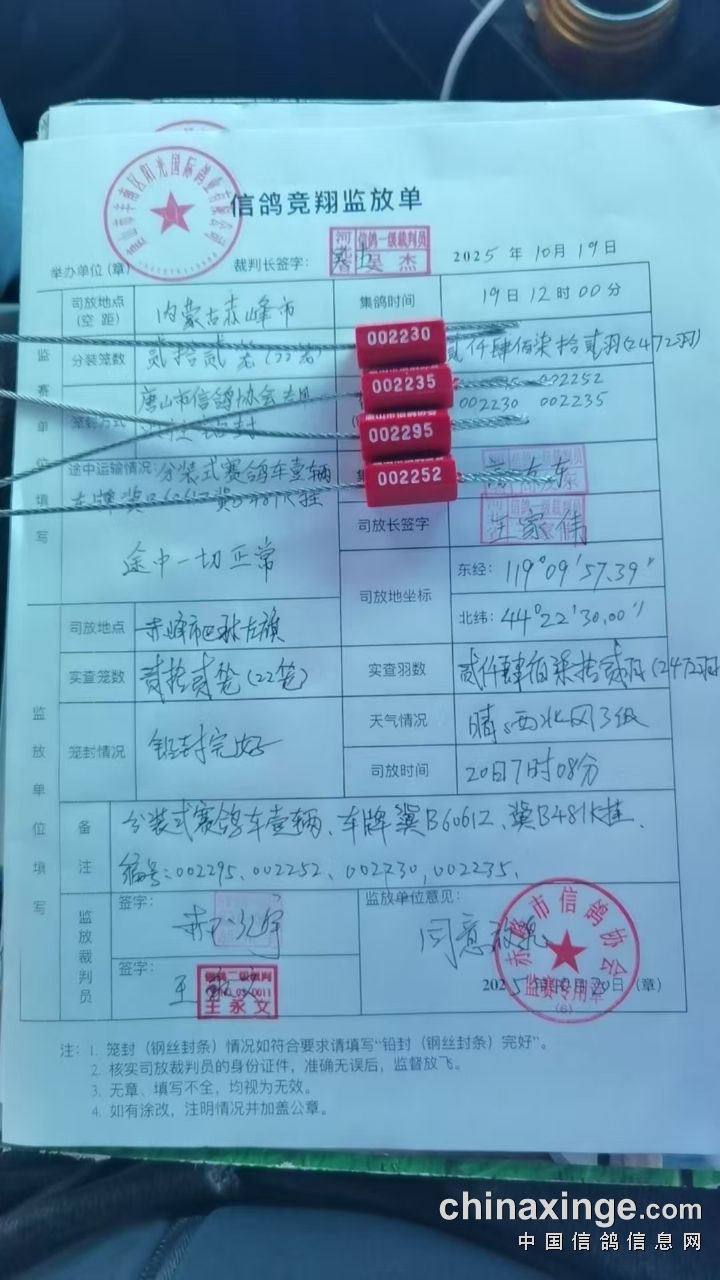 信鸽竞翔监放单
举办单位(章) 裁判长签字: 信鸽一级裁判员 吴杰 2025年10月19日
司放地点(空距) 内蒙古赤峰市 集鸽时间 19日12时00分
监赛单位填写
分装笼数 贰拾贰笼(22笼) 贰仟肆佰柒拾贰羽(2472羽)
002230
002235
002295
002252
笼封方式 唐山市信鸽协会专用 002252
002230 002235
途中运输情况: 分装式赛鸽车壹辆
途中一切正常
信鸽一级裁判员
司放长签字 王家伟
司放地坐标 东经: 119°09′57.39″
北纬: 44°22′30.00″
监放单位填写
司放地点 赤峰市巴林左旗
实查笼数 贰拾贰笼(22笼) 实查羽数 贰仟肆佰柒拾贰羽(2472羽)
笼封情况 铅封完好 天气情况 晴、西北风3级
司放时间 20日7时08分
备注 分装式赛鸽车壹辆、车牌冀B60612、冀B481K挂、
编号:002295、002252、002230、002235、
监放裁判员 签字: 监放单位意见:
同意放飞
签字: 信鸽二级裁判 王永文
赤峰市信鸽协会 监赛专用章 (6)
2025年10月20日(章)
注: 1. 笼封(钢丝封条)情况如符合要求请填写“铅封(钢丝封条)完好”。
2. 核实司放裁判员的身份证件,准确无误后,监督放飞。
3. 无章、填写不全,均视为无效。
4. 如有涂改,注明情况并加盖公章。
chinaxinge.com
中国信鸽信息网